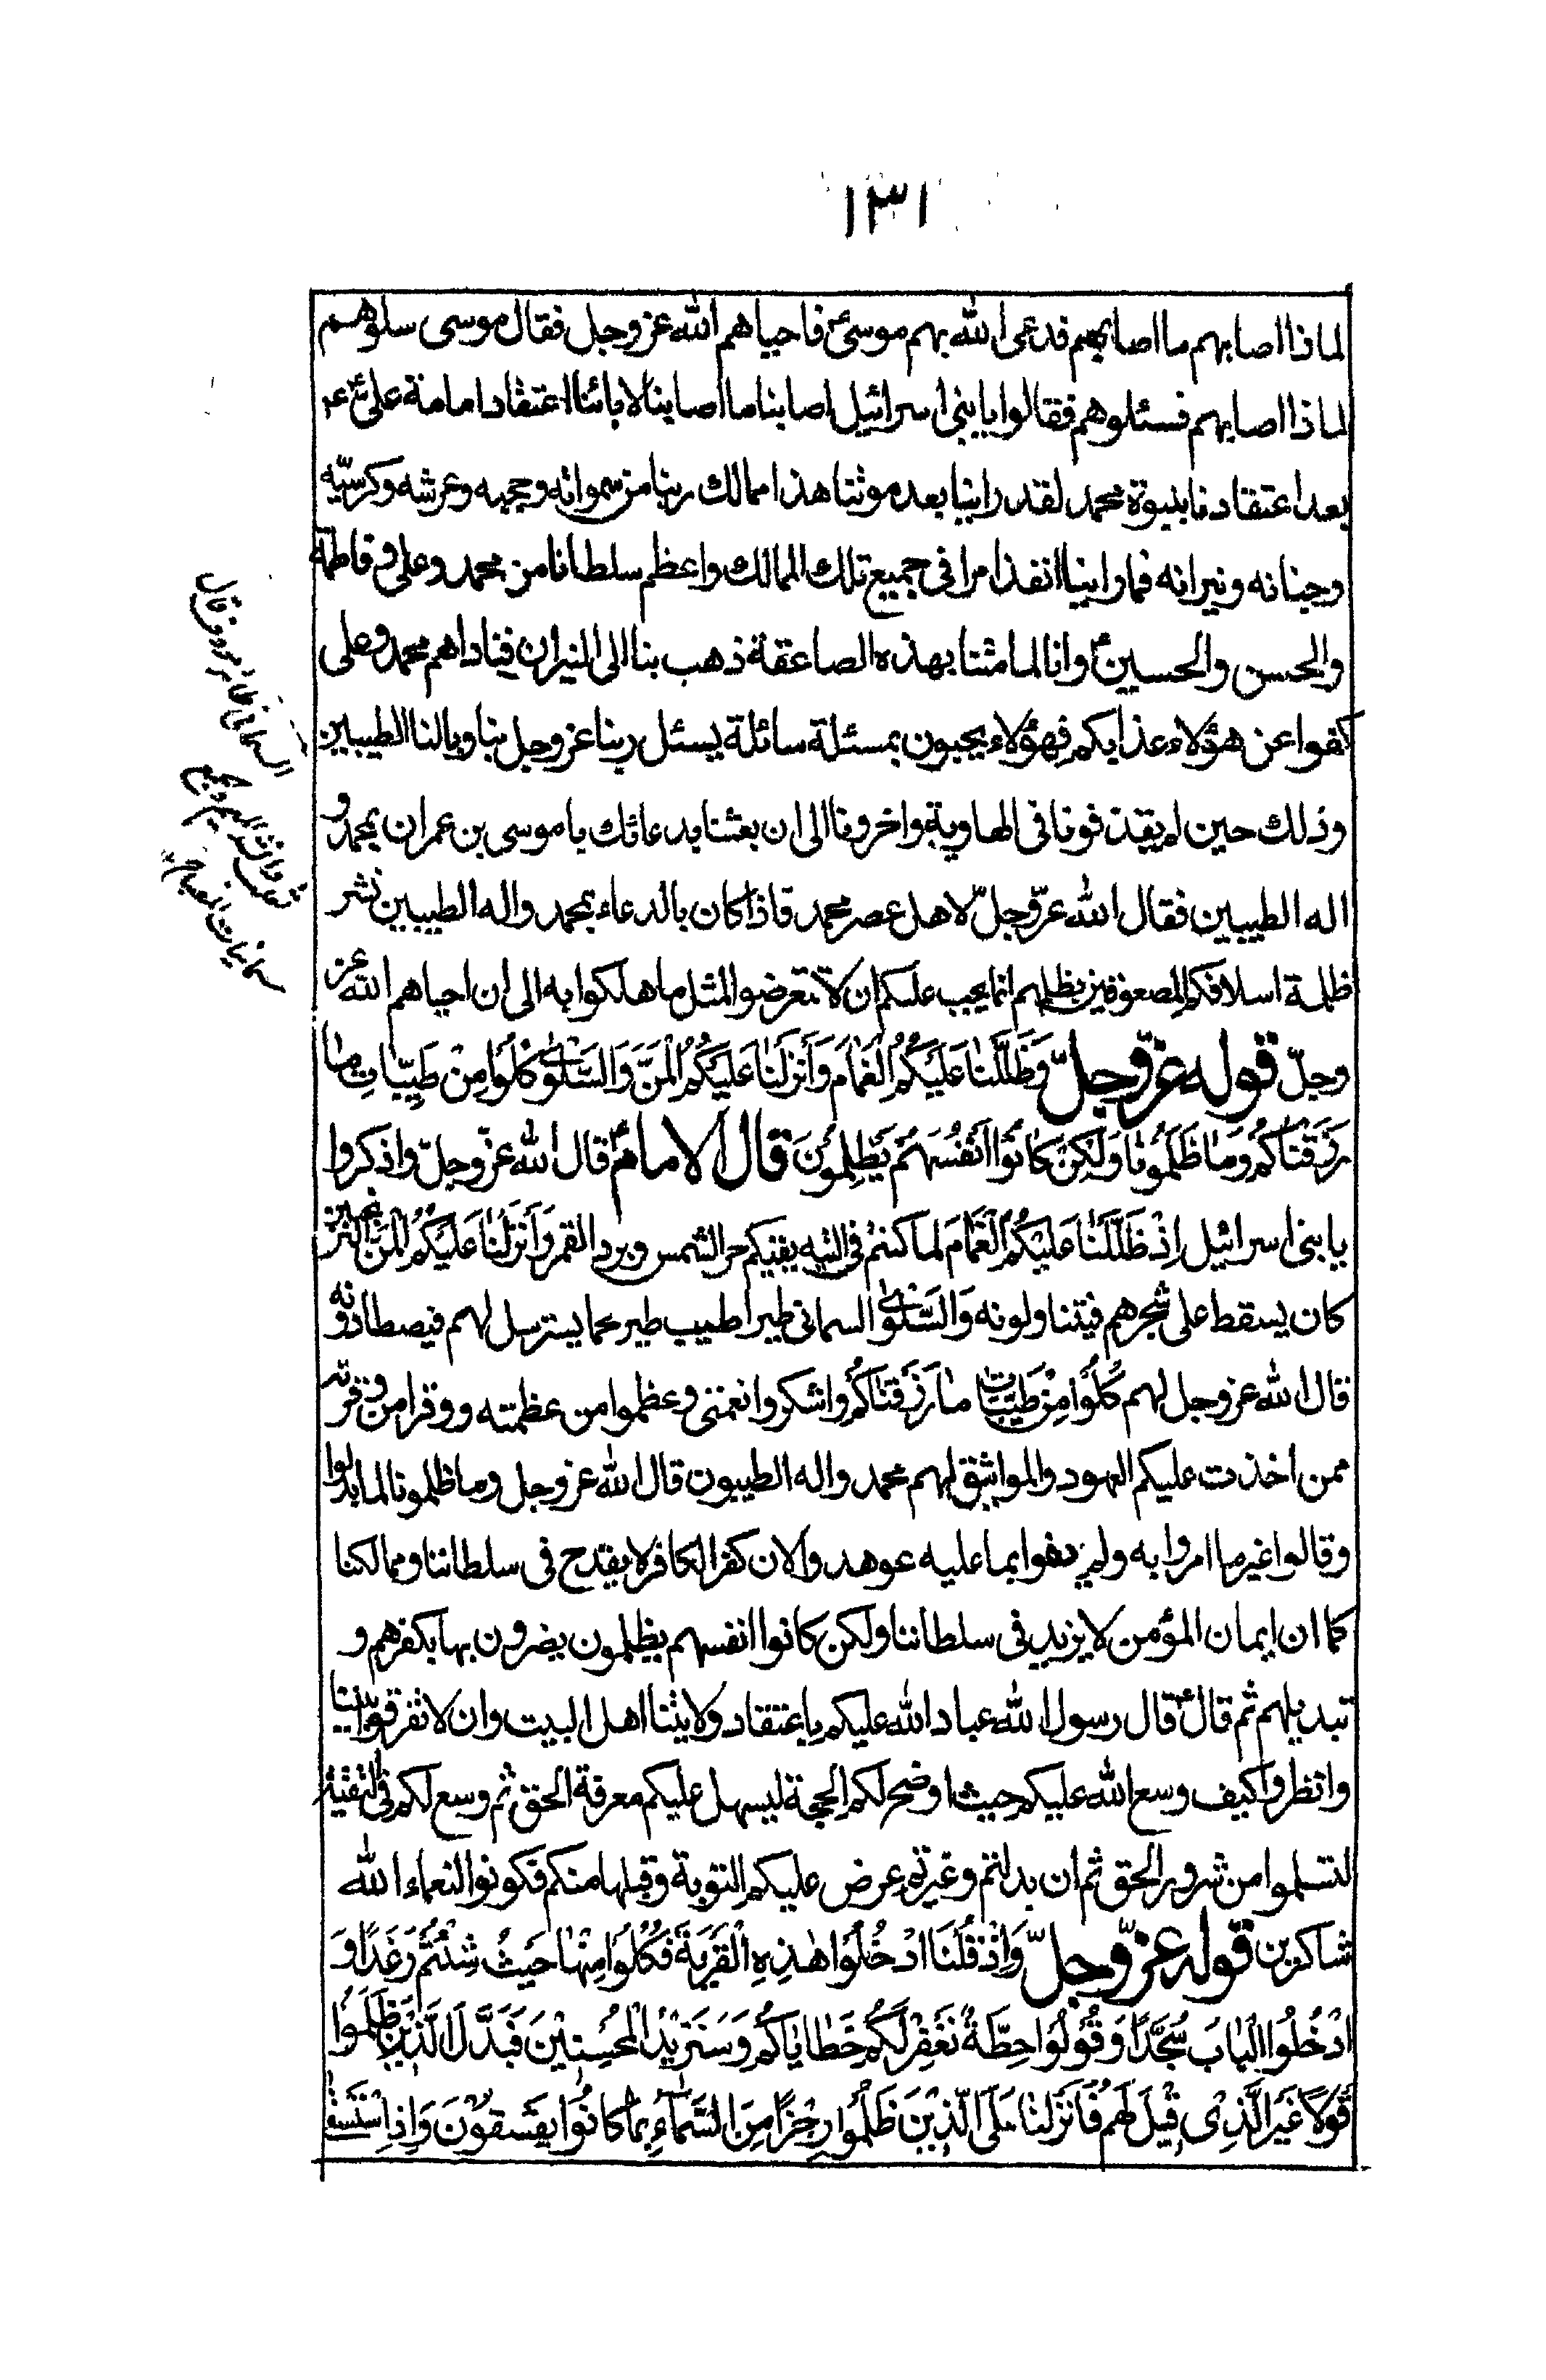 ١٣١
لماذا اصابهم ما اصابهم فدعى الله بهم موسىؑ فاحياهم الله عز وجل فقال موسى سلوهم
لماذا اصابهم فسئلوهم فقالوا يا بنى اسرائيل اصابنا ما اصابنا لابائنا اعتقاد امامة علىؑ
بعد اعتقادنا بنبوة محمد لقد راينا بعد موتنا هذا ممالك ربنا من سمواته وحجبه وعرشه وكرسيّه
وجنانه ونيرانه فما راينا انفذ امرا فى جميع تلك الممالك واعظم سلطانا من محمد وعلى وفاطمة
والحسن والحسينؑ وانا لما متنا بهذه الصاعقة ذهب بنا الى النيران فناداهم محمد وعلى
كفوا عن هؤلاء عذابكم فهؤلاء يحيون بمسئلة سائلة يسئل ربنا عز وجل بنا وبالنا الطيبين
وذلك حين لم يقذفونا فى الهاوية واخرونا الى ان بعثنا بدعائك يا موسى بن عمران بمحمد و
اله الطيبين فقال الله عزّ وجلّ لاهل عصر محمد فاذا كان بالدعاء بمحمد واله الطيبين نشر
ظلمة اسلافكم المصعوقين بظلمهم انما يجب عليكم ان لا تتعرضوا لمثل ما هلكوا به الى ان احياهم الله عز
وجلّ قوله عزّ وجلّ وَظَلَّلْنٰا عَلَيْكُمُ الْغَمٰامَ وَأَنْزَلْنٰا عَلَيْكُمُ الْمَنَّ وَالسَّلْوىٰ كُلُوا مِنْ طَيِّبٰاتِ مٰا
رَزَقْنٰاكُمْ وَمٰا ظَلَمُونٰا وَلٰكِنْ كٰانُوا أَنْفُسَهُمْ يَظْلِمُونَ قال الامامؑ قال الله عزّ وجلّ واذكروا
يا بنى اسرائيل اِذْ ظَلَّلْنٰا عَلَيْكُمُ الْغَمٰامَ لما كنتم فى التيه يقيكم حر الشمس وبرد القمر وَأَنْزَلْنٰا عَلَيْكُمُ الْمَنَّ الترنجبين
كان يسقط على شجرهم فيتناولونه وَالسَّلْوىٰ السمانى طيرا طيب طير لحما يسترسل لهم فيصطادونه
قال الله عز وجل لهم كُلُوا مِنْ طَيِّبٰاتِ مٰا رَزَقْنٰاكُمْ واشكروا نعمتى وعظموا من عظمته ووقرا من وقرته
ممن اخذت عليكم العهود والمواثيق لهم محمد واله الطيبون قال الله عز وجل وما ظلمونا لما بدلوا
وقالوا غير ما امروا به ولم يفوا بما عليه عوهدوا لان كفر الكافر لا يقدح فى سلطاننا وممالكنا
كما ان ايمان المؤمن لا يزيد فى سلطاننا ولكن كانوا انفسهم يظلمون يضرون بها بكفرهم و
تبديلهم ثم قالؑ قال رسول الله عباد الله عليكم باعتقاد ولايتنا اهل البيت وان لا تفرقوا بيننا
وانظروا كيف وسع الله عليكم حيث اوضح لكم الحجة ليسهل عليكم معرفة الحق ثم وسع لكم فى التقية
لتسلموا من شرور الحق ثم ان بدلتم وغيرتم عرض عليكم التوبة وقبلها منكم فكونوا لنعماء الله
شاكرين قوله عزّ وجلّ وَاِذْ قُلْنَا ادْخُلُوا هٰذِهِ الْقَرْيَةَ فَكُلُوا مِنْهٰا حَيْثُ شِئْتُمْ رَغَدًا وَ
ادْخُلُوا الْبٰابَ سُجَّدًا وَقُولُوا حِطَّةٌ نَغْفِرْ لَكُمْ خَطٰايٰاكُمْ وَسَنَزِيْدُ الْمُحْسِنِيْنَ فَبَدَّلَ الَّذِيْنَ ظَلَمُوا
قَوْلًا غَيْرَ الَّذِى قِيْلَ لَهُمْ فَاَنْزَلْنٰا عَلَى الَّذِيْنَ ظَلَمُوا رِجْزًا مِنَ السَّمٰآءِ بِمٰا كٰانُوا يَفْسُقُوْنَ وَاِذِ اسْتَسْقٰى